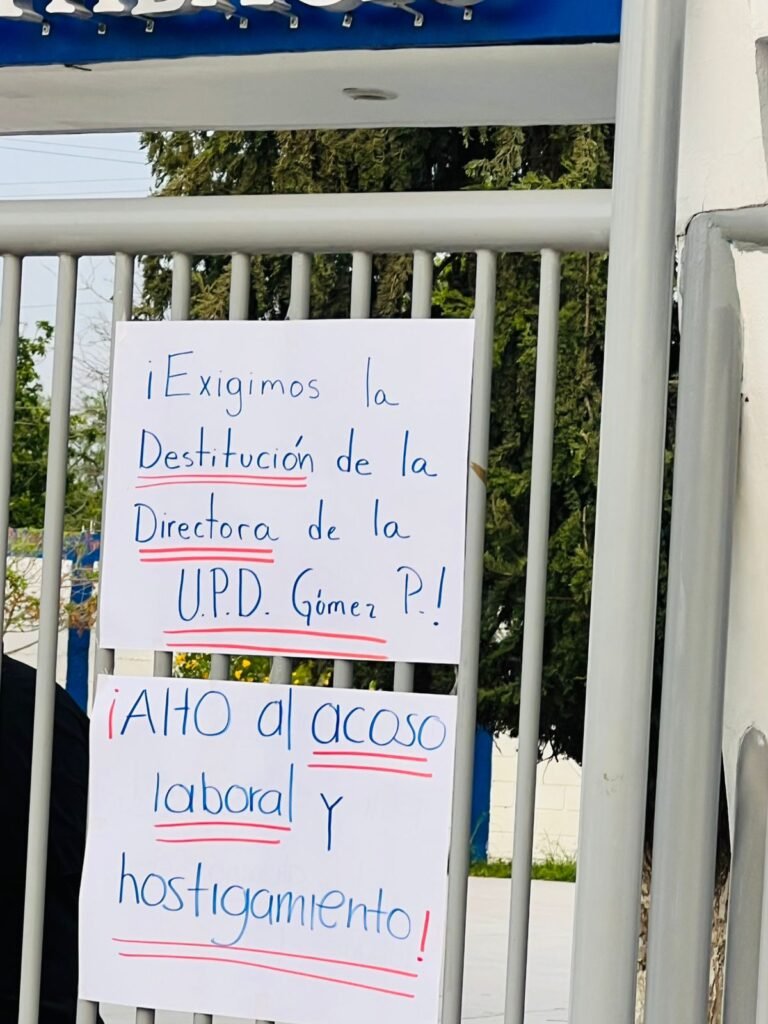 ¡Exigimos la
Destitución de la
Directora de la
U.P.D. Gómez P.!
¡Alto al acoso
laboral y
hostigamiento!